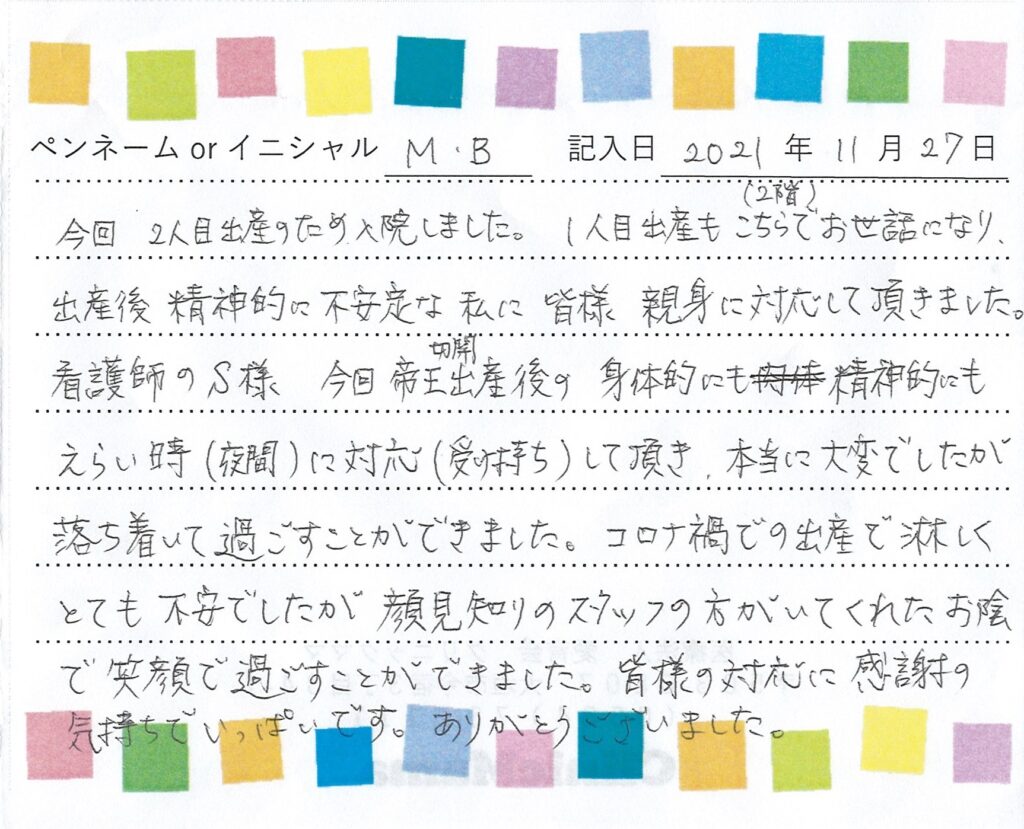 ペンネーム or イニシャル M・B 記入日 2021 年 11 月 27 日
(2階)
今回 2人目出産のため入院しました。 1人目出産も こちらでお世話になり、
出産後 精神的に 不安定な 私に 皆様 親身に対応して頂きました。
切開
看護師のS様 今回 帝王出産後の 身体的にも 精神的にも
えらい時(夜間)に対応(受け持ち)して頂き、本当に大変でしたが
落ち着いて過ごすことができました。コロナ禍での出産で淋しく
とても 不安でしたが 顔見知りのスタッフの方がいてくれたお陰
で 笑顔で過ごすことができました。皆様の対応に 感謝の
気持ちでいっぱいです。ありがとうございました。